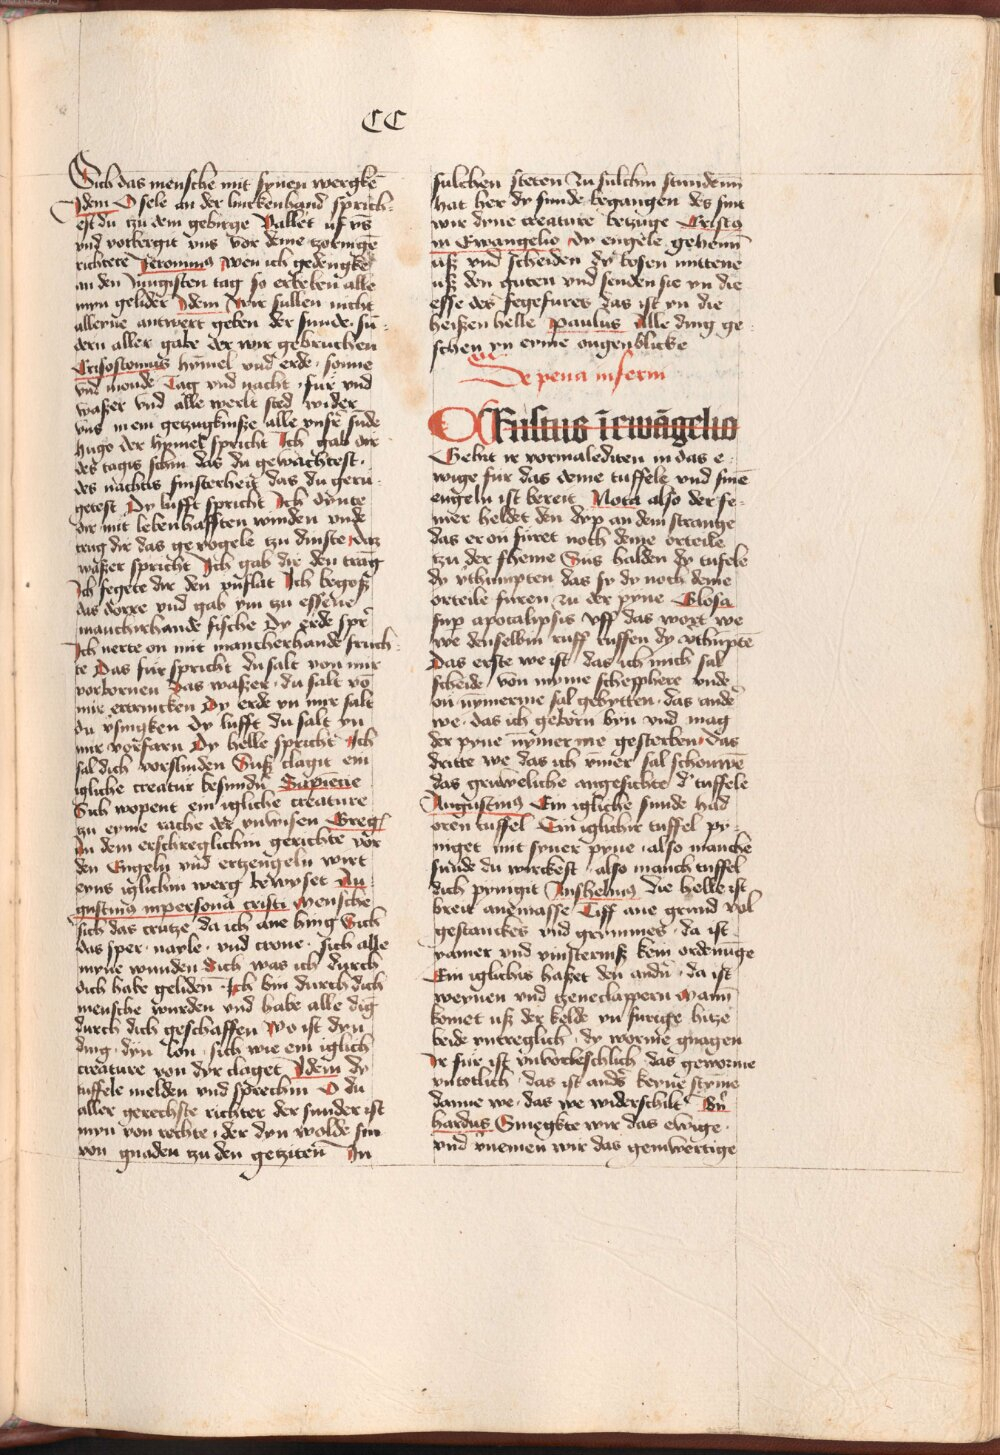 CC
Sich das mensche mit synen wergkē
Idem O sele an der linckenhand sprich
est du tzu dem gebirge Vallet uf vns
vnd vorbergit vns vor deme tzornigē
richtere Jeronimus Wen ich gedengke
an den Jungisten tag so erbeben alle
myn gelider Idem Wir sullen nicht
alleyne antwert geben der sunde sū
dern aller gabe der wir gebruchen
Crisostomus hymel vnd erde sonne
vnd monde Tag vnd nacht fur vnd
waßer vnd alle werlt sted wider
vns in ein getzugkniße alle vnser sūde
hugo der hymel spricht Ich gab dir
des tagis schin das du gewachtest
des nachtis finsterheit das du geru
getest Dy lufft spricht Ich dynte
dir mit lebenhafften winden vnde
trug dir das gevogele tzu dinste Daz
waßer spricht Ich gab dir den trāg
Ich fegete dir den vnflat Ich begoß
das dorre vnd gab ym tzu essene
mancherhande fische Dy erde spr
Ich nerte on mit mancherhande fruch
te Das fur spricht du salt von mir
vorbornen Das waßer du salt vō
mir ertrincken Dy erde yn mir salt
du vsingken Dy lufft du salt yn
mir vorfarn Dy helle spricht Ich
sal dich vorslinden Suß clagit ein
igliche creatur besundū Sapiencie
Sich wopent ein igliche creature
zu eyme rache der vnwisen Greg
In dem erschreglichin gerichte vor
den Engeln vnd ertzengeln wirt
eyns iglichin werg bewyset Au
gustinus in persona cristi Mensche
sich das crutze da ich ane hing Sich
das sper nayle vnd crone sich alle
myne wunden Sich was ich durch
dich habe geliden Ich bin durch dich
mensche wurden vnd habe alle dīg
durch dich geschaffen Wo ist dyn
ding dyn lon sich wie ein iglich
creature von dyr claget Idem dy
tuffele melden vnd sprechin O du
aller gerechste richter der sunder ist
myn von rechte der dyn wolde sin
von gnaden tzu den getziten In
sulchen steten zu sulchin stunden
hat her dy sunde begangen des sint
wir dyne creature betzuge Cristus
in Ewangelio Dy engele gehenn
uß vnd scheiden dy bosen mittene
uß den guten vnd senden sie yn die
esse des fegefures das ist yn die
heißen helle Paulus Alle ding ge
schen yn eyme ougenblicke
De pena inferni
Cristus in ewāgelio
Gehit ir vormalediten in das e
wige fur das deme tuffele vnd sinē
engeln ist bereit Nota also der fe
mer heldet den dyp an dem strange
das er on furet noch deme orteile
tzu der pheme Sus halden dy tufele
dy vthumpten das sy dy noch deme
orteile furen zu der pyne Glosa
sup apocalipsis Uff das wort we
we denselbin ruff ruffen dy vthūptē
Das erste we ist das ich mich sal
scheide von myme schepphere vnde
on nymerme sal gebytten das ander
we das ich geborn byn vnd mag
der pyne nymerme gesterben Das
dritte we das ich ymer sal schouwē
das gruweliche angesichte d' tuffele
Augustinus Ein igliche sunde had
oren tuffel Ein iglichir tuffel py
niget mit syner pyne also manche
sunde du wirckest also manch tuffel
dich pyngit Anshelmus die helle ist
breit anemasse Tiff ane grund vol
gestanckes vnd grymmes da ist
yamer vnd vinsterniß kein ordenūge
Ein iglichis haßet den andn da ist
weynen vnd tzeneclappern Wann
komet uß der kelde yn furige hitze
beide vntreglich dy worme gnagen
Ir fur ist vnvorleschlich das geworme
vntotlich das ist anders keyne stymē
danne we das we widerschilt Bn
hardus Smegkte wir das ewige
vnd vnemen wir das geinwertige